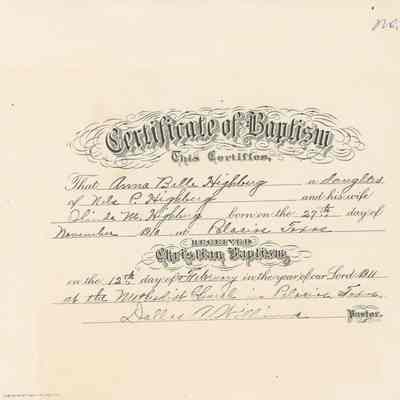 No.
Certificate of Baptism
This Certifies,
That Anna Belle Highberg a daughter
of Nels P. Highberg and his wife
Olinda M. Highberg born on the 27th day of
November 1910 at Palacios Texas
RECEIVED
Christian Baptism
on the 12th day of February in the year of our Lord 1911
at the Methodist Church in Palacios Texas.
Dallas Williams
Pastor.